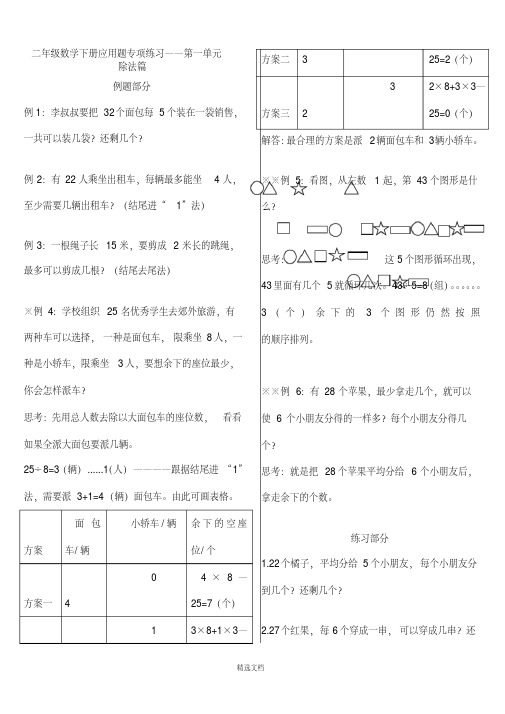 二年级数学下册应用题专项练习——第一单元
除法篇
例题部分
例1：李叔叔要把 32个面包每 5个装在一袋销售，
一共可以装几袋？还剩几个？
例2：有 22 人乘坐出租车，每辆最多能坐 4 人，
至少需要几辆出租车？（结尾进“ 1”法）
例3：一根绳子长 15 米，要剪成 2 米长的跳绳，
最多可以剪成几根？（结尾去尾法）
※例 4：学校组织 25 名优秀学生去郊外旅游，有
两种车可以选择， 一种是面包车， 限乘坐 8人，一
种是小轿车，限乘坐 3人，要想余下的座位最少，
你会怎样派车？
思考：先用总人数去除以大面包车的座位数， 看看
如果全派大面包要派几辆。
25÷8=3（辆）......1（人）————跟据结尾进 “1”
法，需要派 3+1=4（辆）面包车。由此可画表格。
面 包 小轿车/辆 余下的空座
方案 车/辆 位/个
0 4 × 8 —
方案一 4 25=7（个）
1 3×8+1×3—
方案二 3 25=2（个）
3 2×8+3×3—
方案三 2 25=0（个）
解答：最合理的方案是派 2辆面包车和 3辆小轿车。
※※例 5：看图，从左数 1 起，第 43 个图形是什
么？
思考： 这5个图形循环出现，
43里面有几个 5就循环几次。43÷5=8（组）。。。。。。
3 （ 个 ） 余 下 的 3 个 图 形 仍 然 按 照
的顺序排列。
※※例 6：有 28 个苹果，最少拿走几个，就可以
使 6 个小朋友分得的一样多？每个小朋友分得几
个？
思考：就是把 28个苹果平均分给 6 个小朋友后，
拿走余下的个数。
练习部分
1.22个橘子，平均分给 5个小朋友，每个小朋友分
到几个？还剩几个？
2.27个红果，每6个穿成一串， 可以穿成几串？还
精选文档